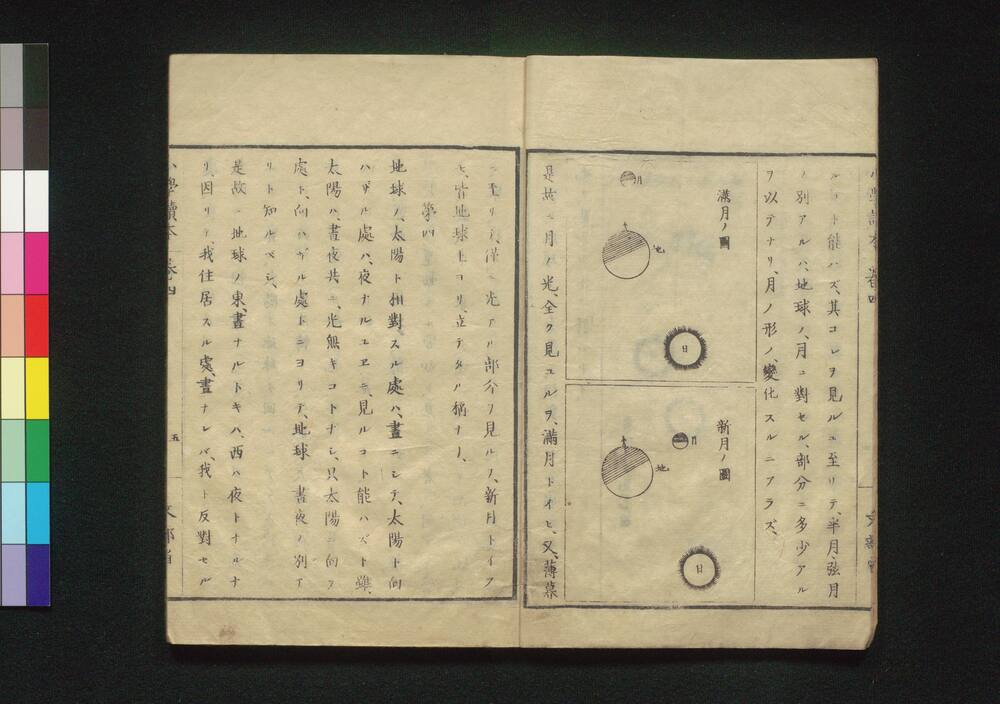 ルコト能ハズ、其コレヲ見ルニ至リテ、半月、弦月
ノ別アルハ、地球ノ、月ニ對セル、部分ニ多少アル
ヲ以テナリ、月ノ形ノ、變化スルニアラズ、
滿月ノ圖
月
地
日
新月ノ圖
月
地
日
是故ニ月ノ光、全ク見ユルヲ、滿月トイヒ、又、薄暮
ニ至リテ、僅ニ光アル部分ヲ見ルヲ、新月トイフ
モ、皆地球上ヨリ、立テタル稱ナリ、
第四
地球ノ、太陽ト相對スル處ハ、晝ニシテ、太陽ト向
ハザル處ハ、夜ナルユヱニ、見ルコト能ハズト雖、
太陽ハ、晝夜共ニ、光無キコトナシ、只太陽ニ向フ
處ト、向ハザル處トニヨリテ、地球 晝夜ノ別ア
リト知ルベシ、
是故ニ地球ノ東、晝ナルトキハ、西ハ夜トナルナ
リ、因リテ、我住居スル處、晝ナレバ、我ト反對セル
小學讀本 卷四
五
文部省